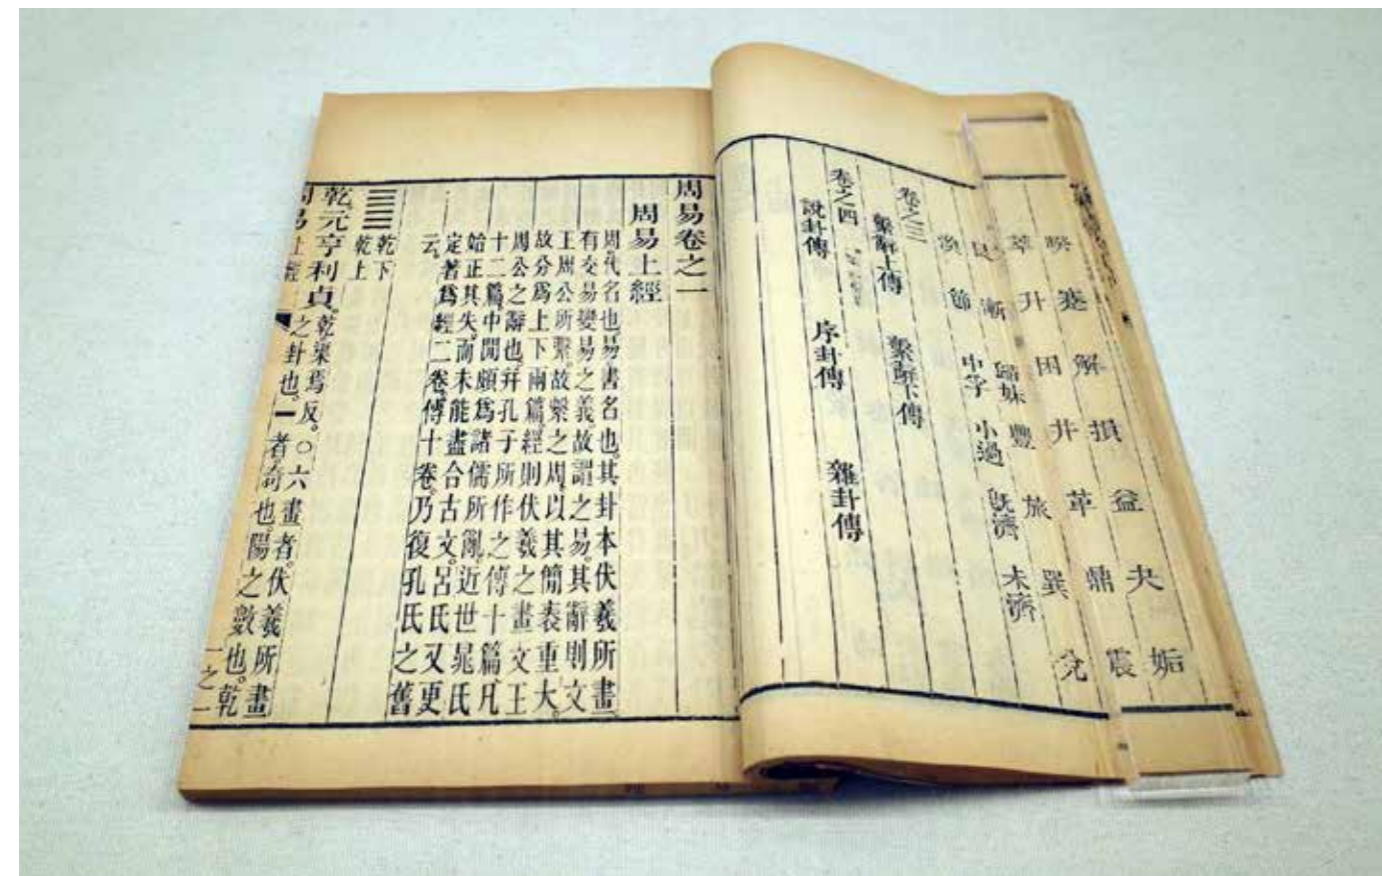 睽 蹇 解 損 益 夬 姤
萃 升 困 井 革 鼎 震
艮 漸 歸妹 豐 旅 巽 兌
渙 節 中孚 小過 既濟 未濟
卷之三
繫辭上傳 繫辭下傳
卷之四
說卦傳 序卦傳 雜卦傳
周易卷之一
周易上經
周。代名也。易。書名也。其卦本伏羲所畫。
有交易變易之義。故謂之易。其辭則文
王周公所繫。故繫之周。以其簡袠重大。
故分爲上下兩篇。經則伏羲之畫。文王
周公之辭也。幷孔子所作之傳十篇。凡
十二篇。中閒頗爲諸儒所亂。近世晁氏
始正其失。而未能盡合古文。呂氏又更
定著爲經二卷。傳十卷。乃復孔氏之舊
云。
乾下
乾上
乾。元亨利貞。乾。渠焉反。○六畫者。伏羲所畫
之卦也。一者。奇也。陽之數也。乾
周易上經 一之一